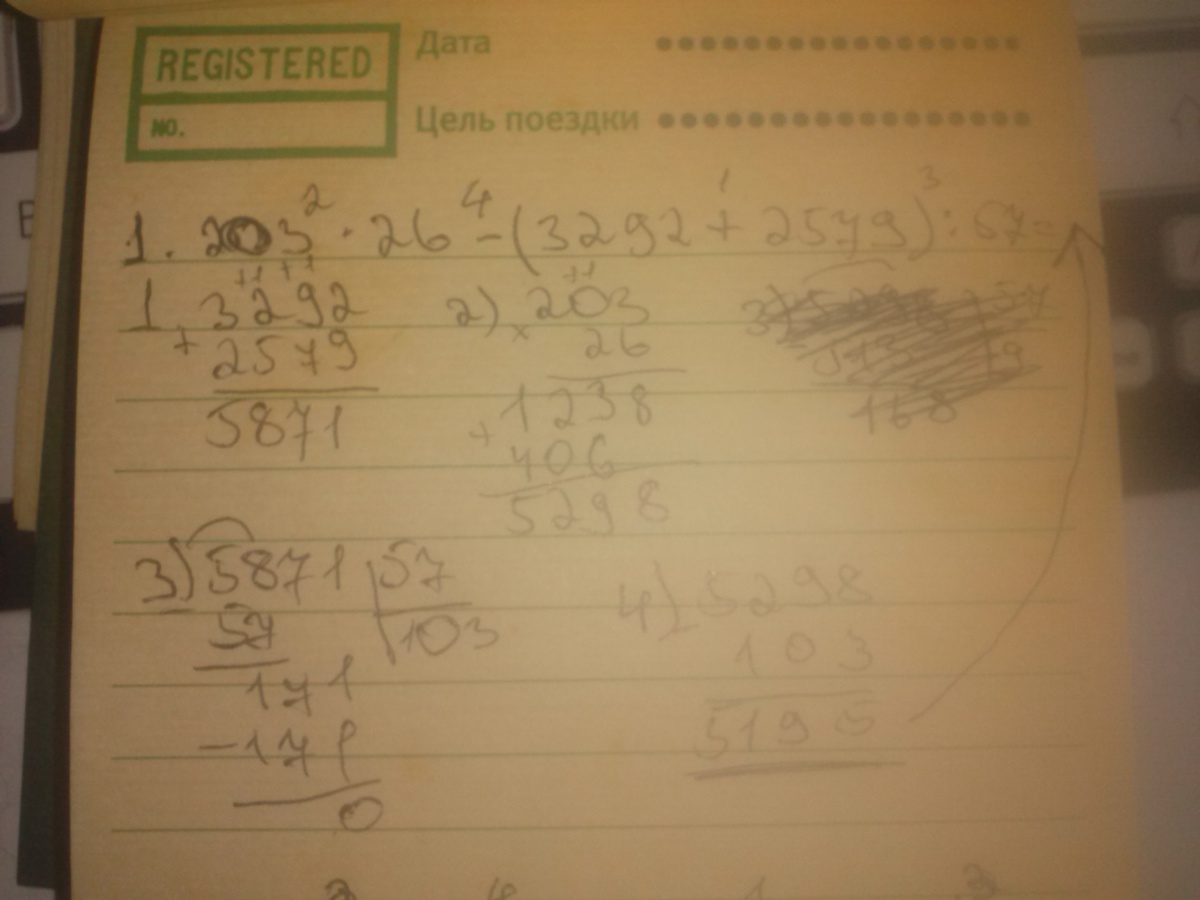 REGISTERED
NO.
Дата
Цель поездки
2 4 1 3
1. 203 · 26 - (3292 + 2579) : 57 =
1. 3292
+ 2579
5871
2) 203
× 26
1238
+ 406
5298
3) 5871 | 57
57 103
171
- 171
0
4) - 5298
103
5195